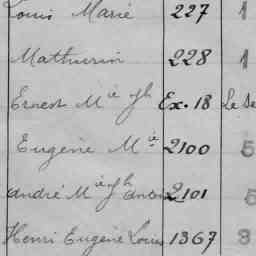 Louis Marie 227 1
Mathurin 228 1
Ernest Mie Jh Ex. 18 Le
Eugène Mie 2100 5
André Mie Jh 2101 5
Henri Eugène Louis 1367 3